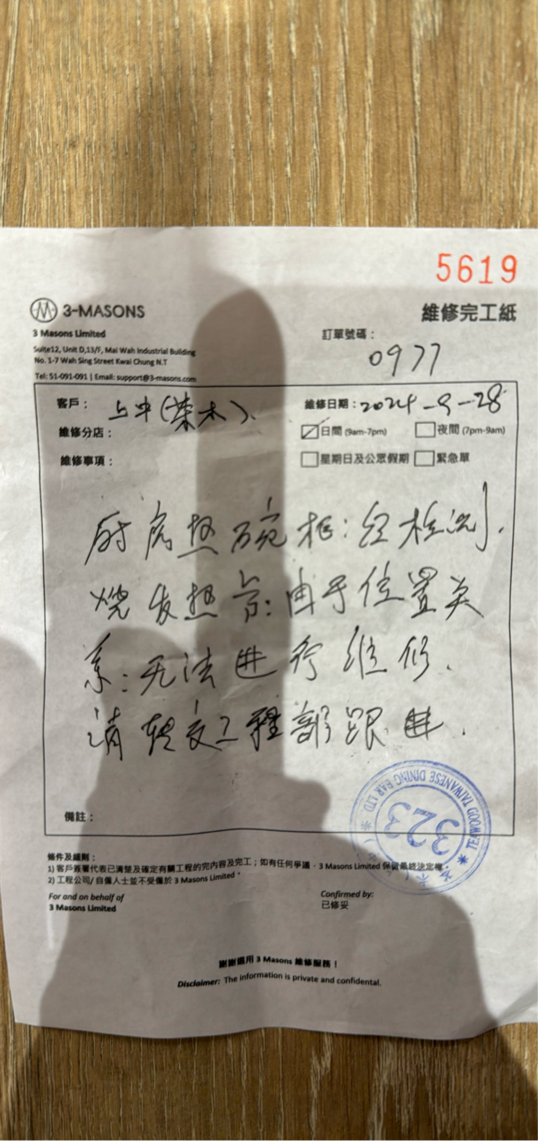 5619
3-MASONS
維修完工紙
3 Masons Limited
Suite12, Unit D,13/F, Mai Wah Industrial Building
No. 1-7 Wah Sing Street Kwai Chung N.T
Tel: 51-091-091 | Email: support@3-masons.com
訂單號碼：
0977
客戶： 上中(茶木).
維修日期：2024-9-28
維修分店：
日間 (9am-7pm) 夜間 (7pm-9am)
維修事項：
星期日及公眾假期 緊急單
厨房热碗柜:经检测.
烧发热 由于位置关
系:无法进行维修.
请转交工程部跟进.
備註：
323
TAIWANESE DINING BAR LTD
條件及細則：
1) 客戶簽署代表已清楚及確定有關工程的完內容及完工；如有任何爭議，3 Masons Limited 保留最終決定權。
2) 工程公司/ 自僱人士並不受僱於 3 Masons Limited。
For and on behalf of
3 Masons Limited
Confirmed by:
已修妥
謝謝選用 3 Masons 維修服務！
Disclaimer: The information is private and confidential.